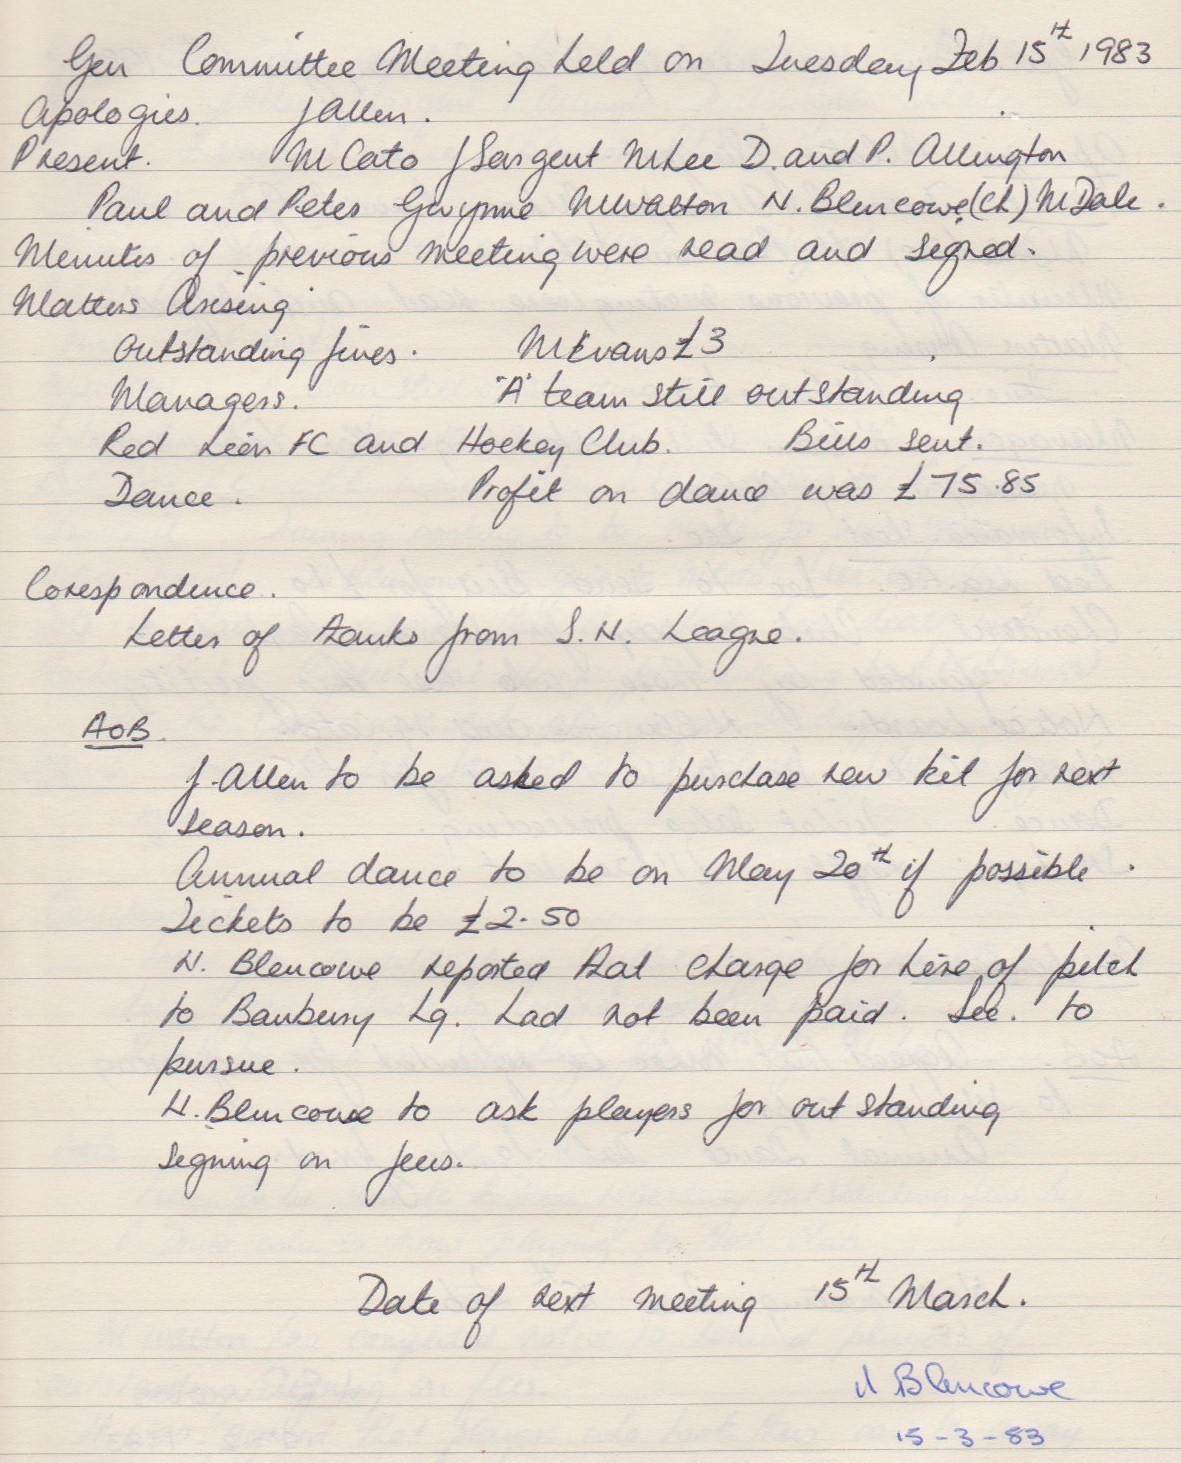 Gen Committee Meeting held on Tuesday Feb 15th 1983
Apologies. J Allen.
Present. M Cato J Sargent M Lee D. and P. Allington
Paul and Peter Gwynne M Watton N. Blencowe (Ch) M Dale.
Minutes of previous meeting were read and signed.
Matters Arising
Outstanding fines. M Evans £3
Managers. "A" team still outstanding
Red Lion FC and Hockey Club. Bills sent.
Dance. Profit on dance was £75.85
Corespondence.
Letter of thanks from S.N. League.
AOB.
J. Allen to be asked to purchase new kit for next
season.
Annual dance to be on May 20th if possible.
Tickets to be £2.50
N. Blencowe reported that charge for hire of pitch
to Banbury Lg. had not been paid. Sec. to
pursue.
N. Blencowe to ask players for outstanding
signing on fees.
Date of next meeting 15th March.
N Blencowe
15-3-83